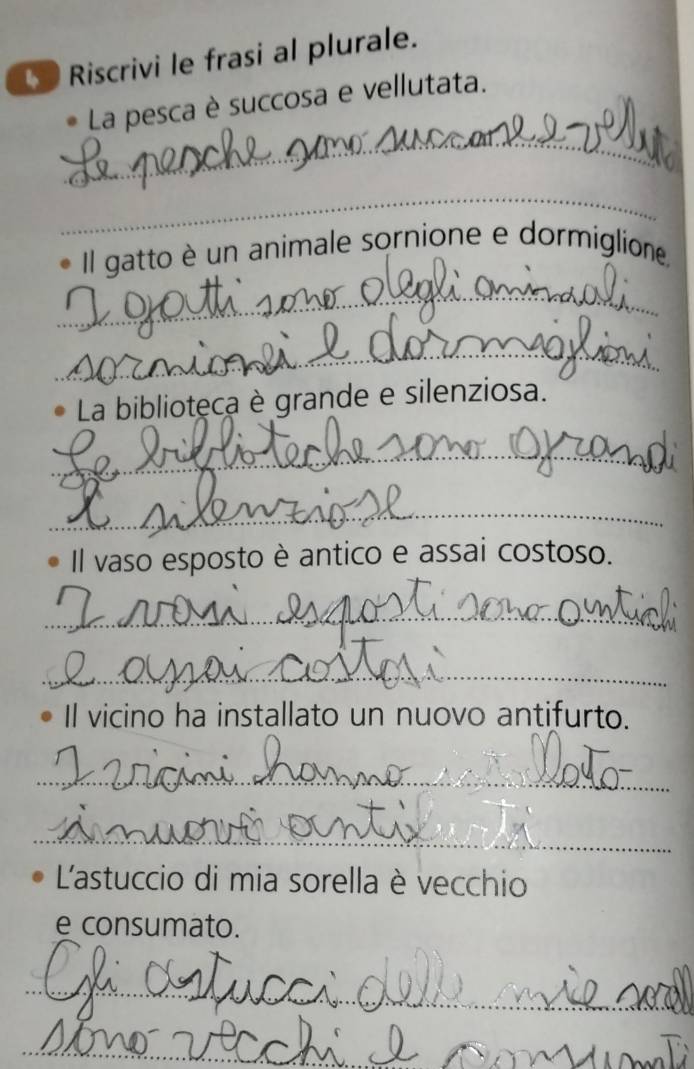 4 Riscrivi le frasi al plurale.
• La pesca è succosa e vellutata.
Le pesche sono succose e vellut
• Il gatto è un animale sornione e dormiglione.
I gatti sono degli animali
sornioni e dormiglioni.
• La biblioteca è grande e silenziosa.
Le biblioteche sono grandi
e silenziose
• Il vaso esposto è antico e assai costoso.
I vasi esposti sono antichi
e assai costosi
• Il vicino ha installato un nuovo antifurto.
I vicini hanno
antifurti
• L'astuccio di mia sorella è vecchio
e consumato.
Gli astucci delle mie sorell
sono vecchi e